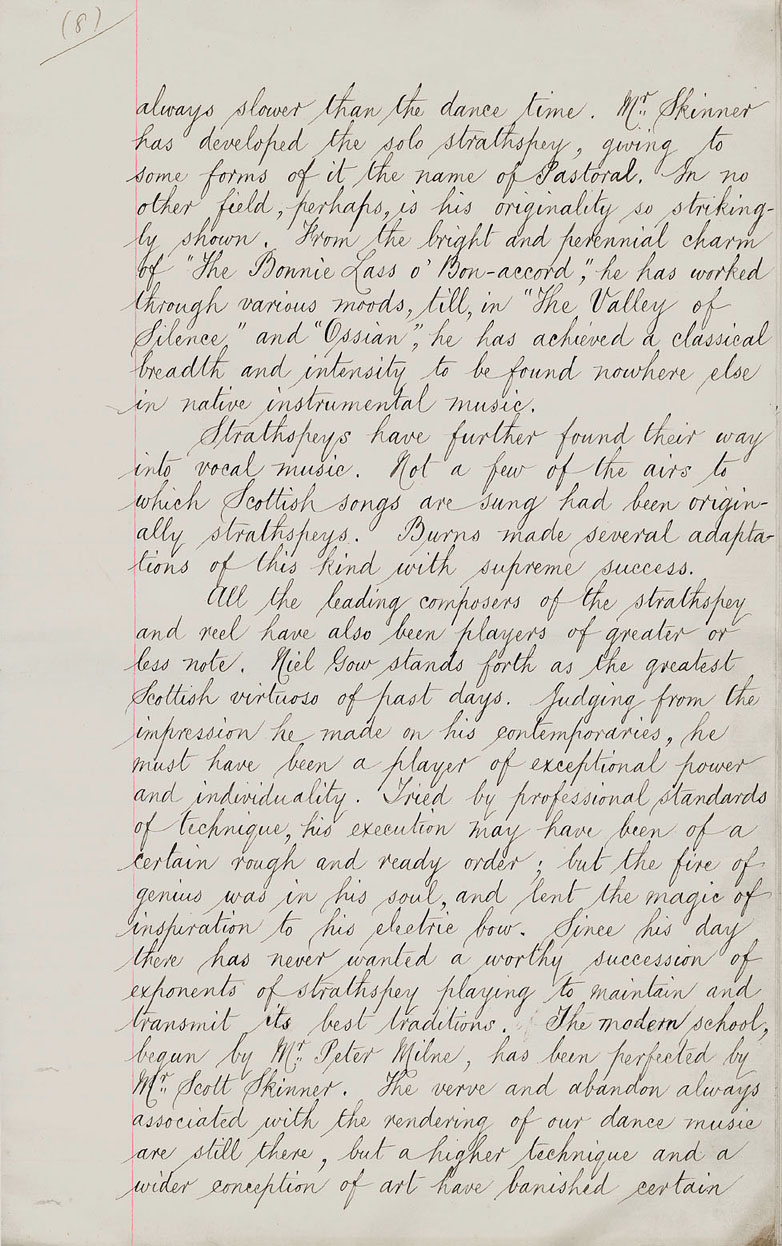 (8)
always slower than the dance time. Mr. Skinner
has developed the solo strathspey, giving to
some forms of it the name of Pastoral. In no
other field, perhaps, is his originality so striking-
ly shown. From the bright and perennial charm
of "The Bonnie Lass o' Bon-accord," he has worked
through various moods, till, in "The Valley of
Silence," and "Ossian", he has achieved a classical
breadth and intensity to be found nowhere else
in native instrumental music.
Strathspeys have further found their way
into vocal music. Not a few of the airs to
which Scottish songs are sung had been origin-
ally strathspeys. Burns made several adapta-
tions of this kind with supreme success.
All the leading composers of the strathspey
and reel have also been players of greater or
less note. Niel Gow stands forth as the greatest
Scottish virtuoso of past days. Judging from the
impression he made on his contemporaries, he
must have been a player of exceptional power
and individuality. Tried by professional standards
of technique, his execution may have been of a
certain rough and ready order; but the fire of
genius was in his soul, and lent the magic of
inspiration to his electric bow. Since his day
there has never wanted a worthy succession of
exponents of strathspey playing to maintain and
transmit its best traditions. The modern school,
begun by Mr. Peter Milne, has been perfected by
Mr. Scott Skinner. The verve and abandon always
associated with the rendering of our dance music
are still there, but a higher technique and a
wider conception of art have banished certain